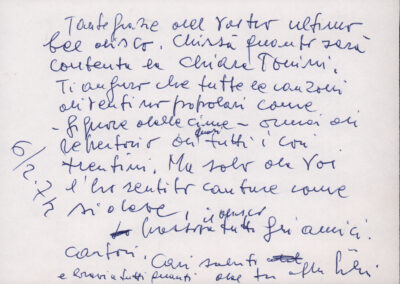 Tante grazie del vostro ultimo
bel disco. Chissà quanto sarà
contenta la Chiara Tomini.
Ti auguro che tutte le canzoni
diventino popolari come
- Signore delle cime - ormai di
repertorio di quasi tutti i cori
trentini. Ma solo da voi
l'ho sentito cantare come
si deve,
a tutti gli amici
cantori. Cari saluti
e bravi a tutti quanti
6/2.72